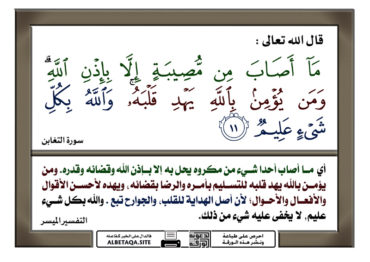 قال الله تعالى :
مَآ أَصَابَ مِن مُّصِيبَةٍ إِلَّا بِإِذْنِ ٱللَّهِۗ
وَمَن يُؤْمِنۢ بِٱللَّهِ يَهْدِ قَلْبَهُۥۚ وَٱللَّهُ بِكُلِّ
شَىْءٍ عَلِيمٌ ١١
سورة التغابن
أي ما أصاب أحدا شيء من مكروه يحل به إلا بإذن الله وقضائه وقدره. ومن
يؤمن بالله يهد قلبه للتسليم بأمره والرضا بقضائه، ويهده لأحسن الأقوال
والأفعال والأحوال؛ لأن أصل الهداية للقلب، والجوارح تبع . والله بكل شيء
عليم، لا يخفى عليه شيء من ذلك.
التفسير الميسر
احرص على طباعة
ونشر هذه الورقة
الدال على الخير كفاعله
ALBETAQA.SITE